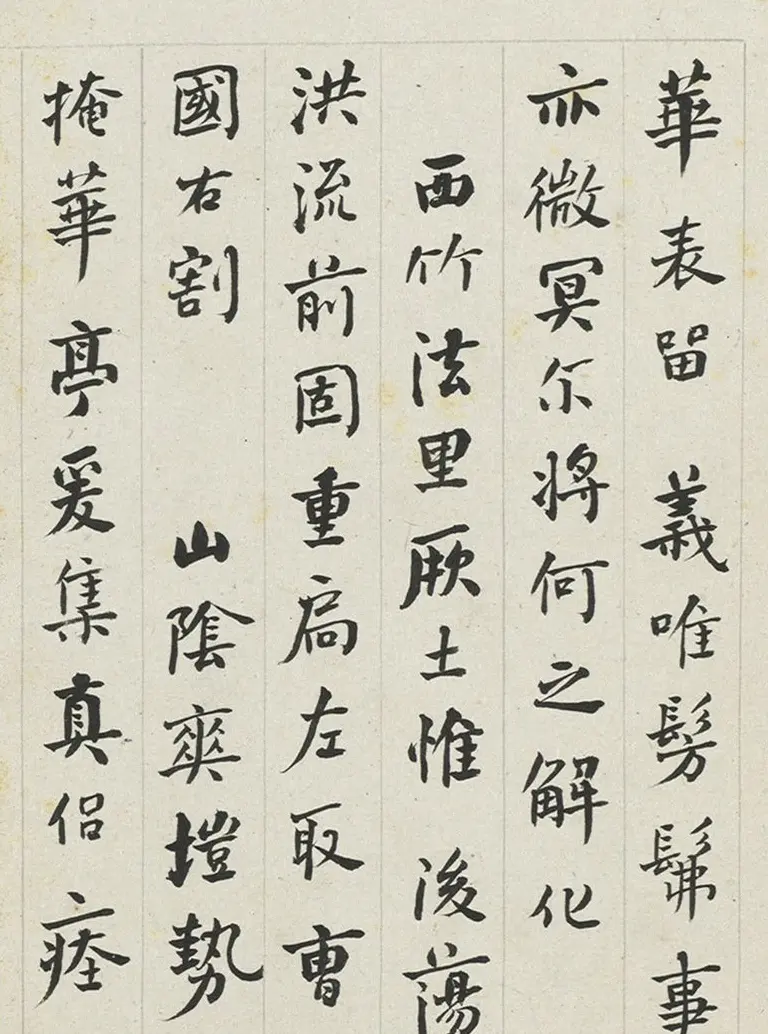 華表留 義唯髣髴事
亦微冥尒將何之解化
西竹法里厥土惟 後蕩
洪流前固重扃左取曹
國右割 山陰爽塏勢
掩華亭爰集真侣瘞